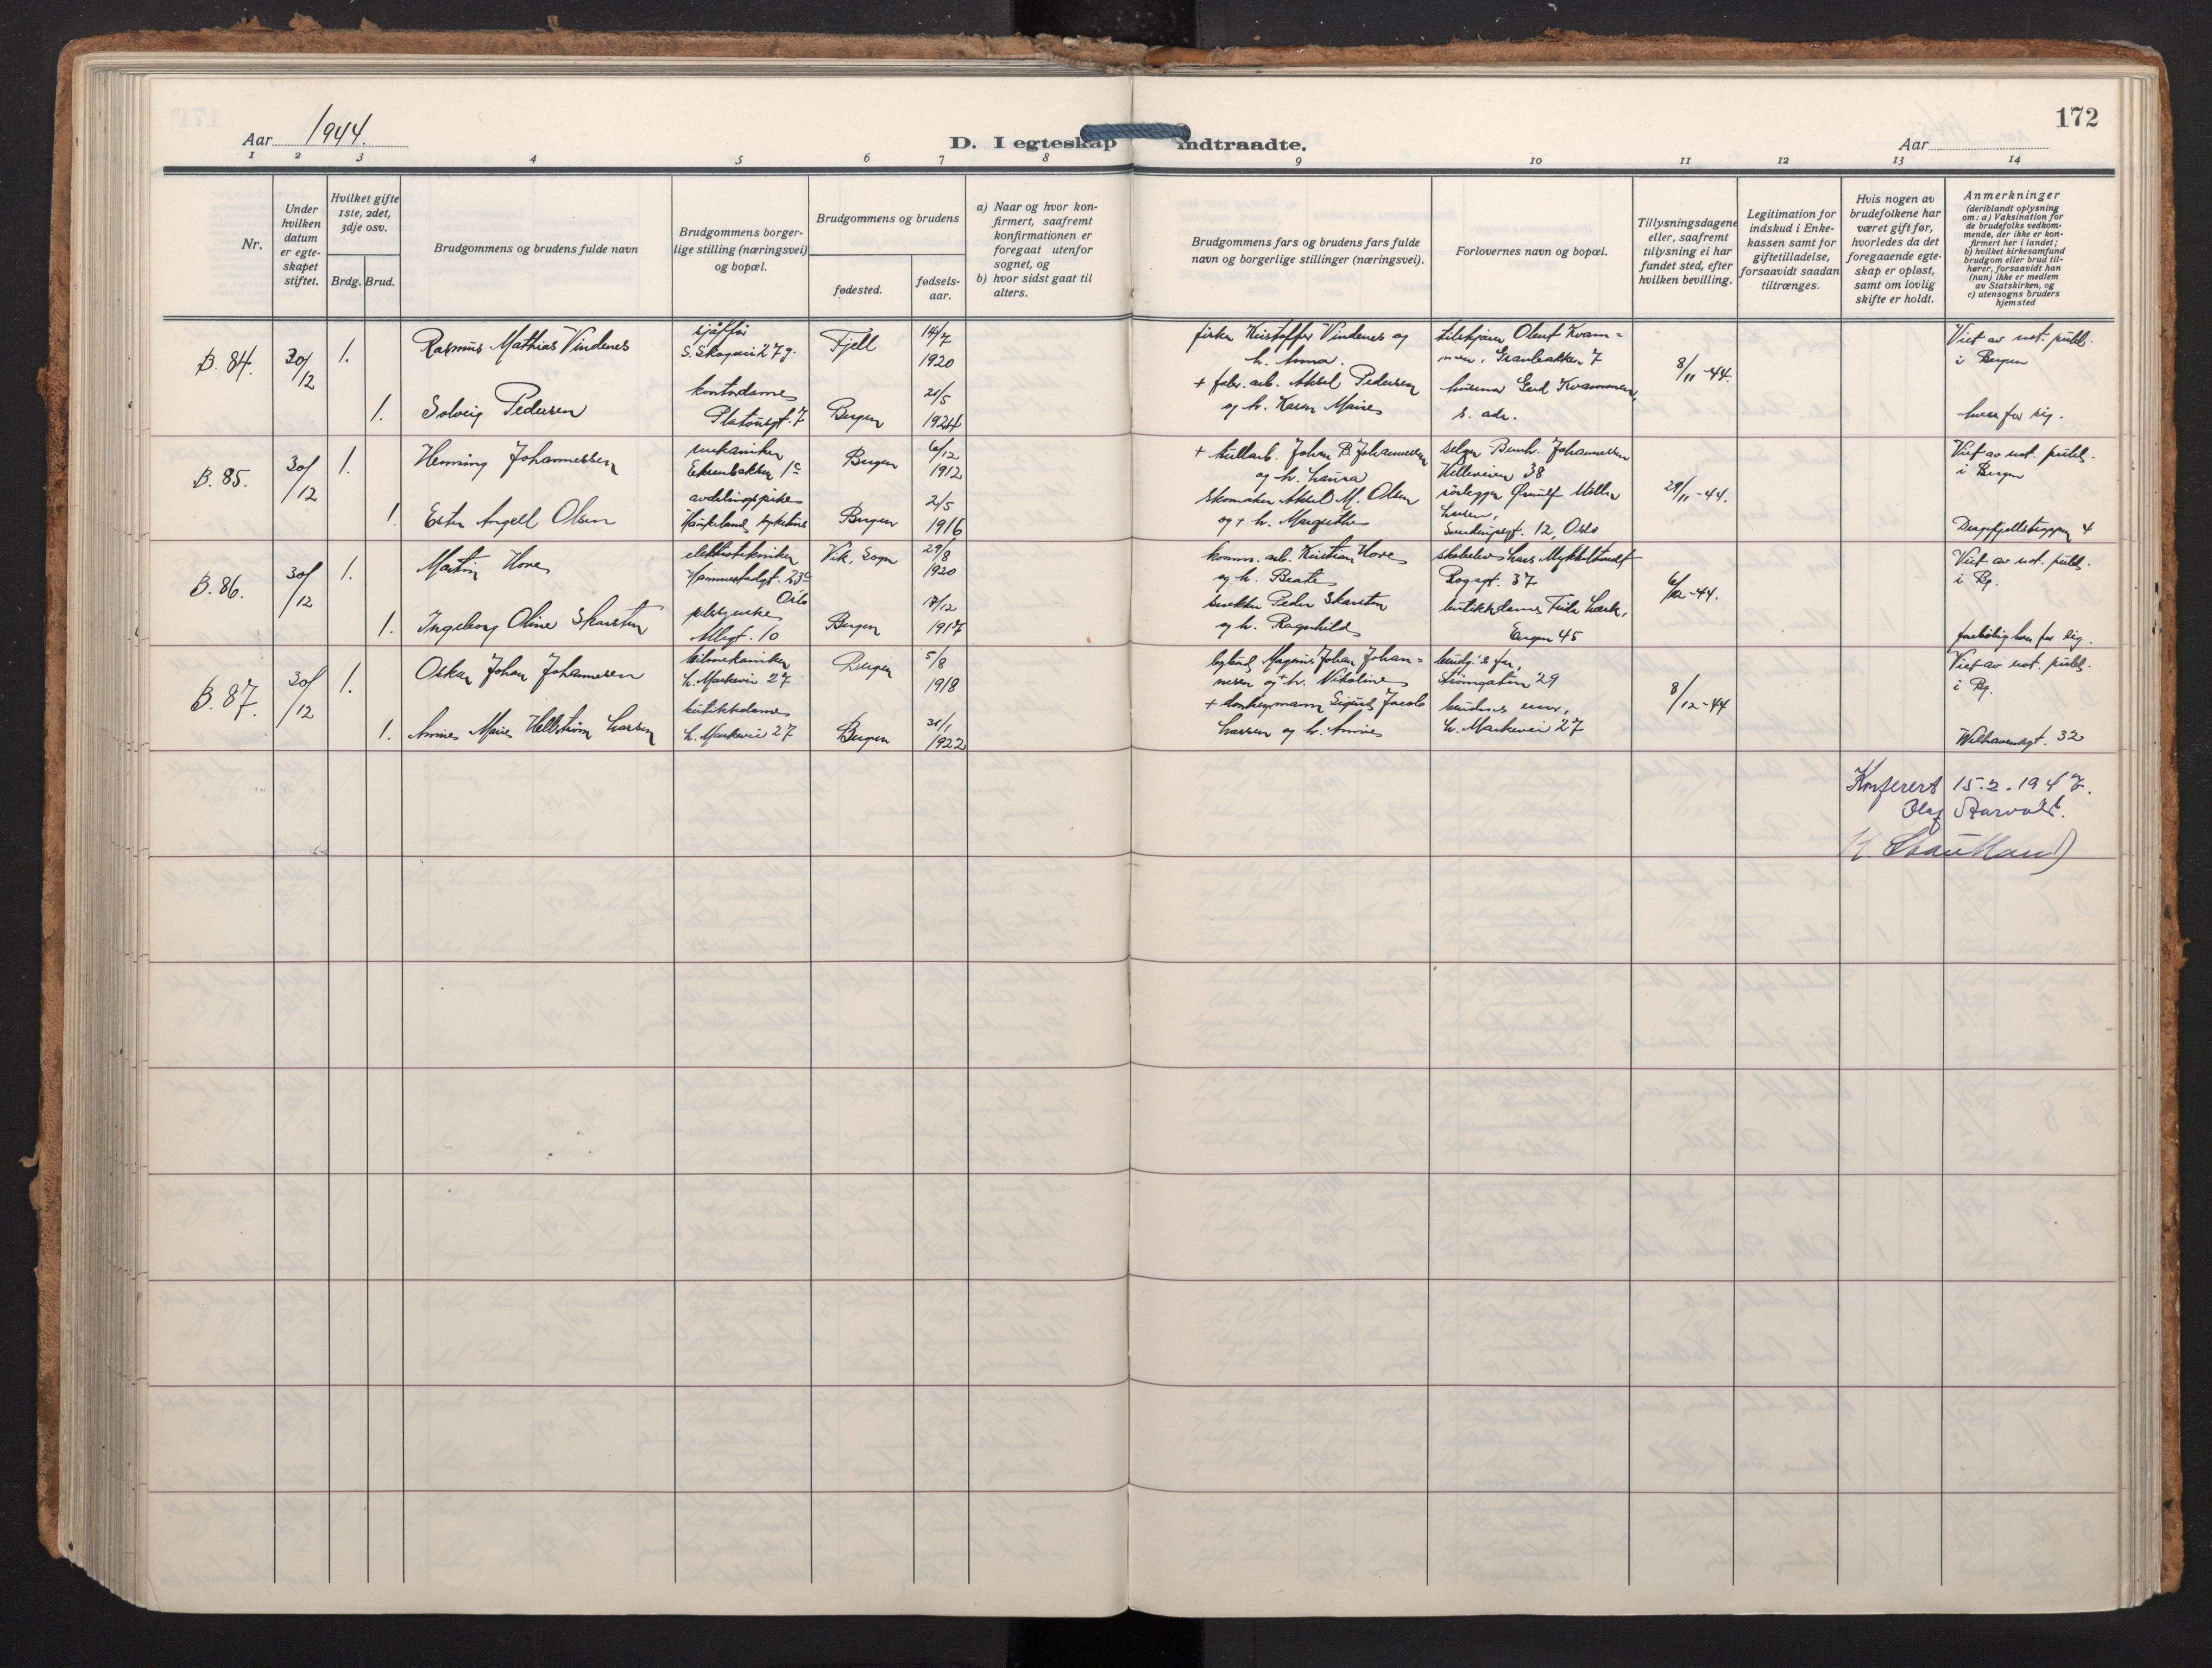 172
Aar 1944.
D. I egteskap indtraadte.
Aar
1 2 3 4 5 6 7 8 9 10 11 12 13 14
Nr.
Under hvilken datum er egteskapet stiftet.
Hvilket gifte 1ste, 2det, 3dje osv.
Brdg. Brud.
Brudgommens og brudens fulde navn
Brudgommens borger-
lige stilling (næringsvei)
og bopæl.
Brudgommens og brudens
fødested.
fødsels-
aar.
a) Naar og hvor kon-
firmert, saafremt
konfirmationen er
foregaat utenfor
sognet, og
b) hvor sidst gaat til
alters.
Brudgommens fars og brudens fars fulde
navn og borgerlige stillinger (næringsvei).
Forlovernes navn og bopæl.
Tillysningsdagene
eller, saafremt
tillysning ei har
fundet sted, efter
hvilken bevilling.
Legitimation for
indskud i Enke-
kassen samt for
giftetilladelse,
forsaavidt saadan
tiltrænges.
Hvis nogen av
brudefolkene har
været gift før,
hvorledes da det
foregaaende egte-
skap er opløst,
samt om lovlig
skifte er holdt.
Anmerkninger
(deriblandt oplysning
om: a) Vaksination for
de brudefolks vedkom-
mende, der ikke er kon-
firmert her i landet;
b) hvilket kirkesamfund
brudgom eller brud til-
hører, forsaavidt han
(hun) ikke er medlem
av Statskirken, og
c) utensogns bruders
hjemsted
B. 84. 30/12 1. Rasmus Mathias Vindenes
sjåffør
S. Skogvei 27g.
Fjell 14/7 1920
fisker Kristoffer Vindenes og
h. Anna.
Oluf Kvam-
men, 7
8/11-44.
Viet av not. publ.
i Bergen
1. Solveig Pedersen
kontordame
Platousgt. 7
Bergen 21/5 1924
+ fabr. arb. Aksel Pedersen
og h. Karen Marie
Gerd Kvammen,
s. adr.
hver for sig.
B. 85. 30/12 1. Henning Johannessen
mekaniker
Ekrenbakken 1c
Bergen 6/12 1912
+ Johan B. Johannessen
og h. Laura
selger Bernh. Johannessen
Helleveien 38
29/11-44.
Viet av not. publ.
i Bergen
1. Ester Angell Olsen
avdelingspike
Haukeland sykehus
Bergen 2/5 1916
skomaker Aksel M. Olsen
og + h. Margrethe
rørlegger Møller
Larsen,
12, Oslo
4
B. 86. 30/12 1. Martin Hove
elektrotekniker
Hammerstadgt. 23c
Oslo
Vik, Sogn 29/8 1920
komm. arb. Kristian Hove
og h. Beate
Lars Mykkeltvedt
37
6/12-44.
Viet av not. publ.
i Bg.
1. Ingeborg Oline Skarsten
Allegt. 10
Bergen 17/12 1917
snekker Peder Skarsten
og h. Ragnhild
butikkdame
Engen 45
foreløbig hver for sig.
B. 87. 30/12 1. Oskar Johan Johannesen
bilmekaniker
L. Markevei 27
Bergen 5/8 1918
bybud Magnus Johan Johan-
nesen og + h. Nikoline
brudg.'s far,
Strømgaten 29
8/12-44
Viet av not. publ.
i Bg.
1. Annie Marie Hellstrøm Larsen
butikkdame
L. Markevei 27
Bergen 31/1 1922
+ donkeymann Sigurd Jacob
Larsen og h. Annie
brudens mor,
L. Markevei 27
Welhavensgt. 32
Konferert 15.2.1947.
Olaf